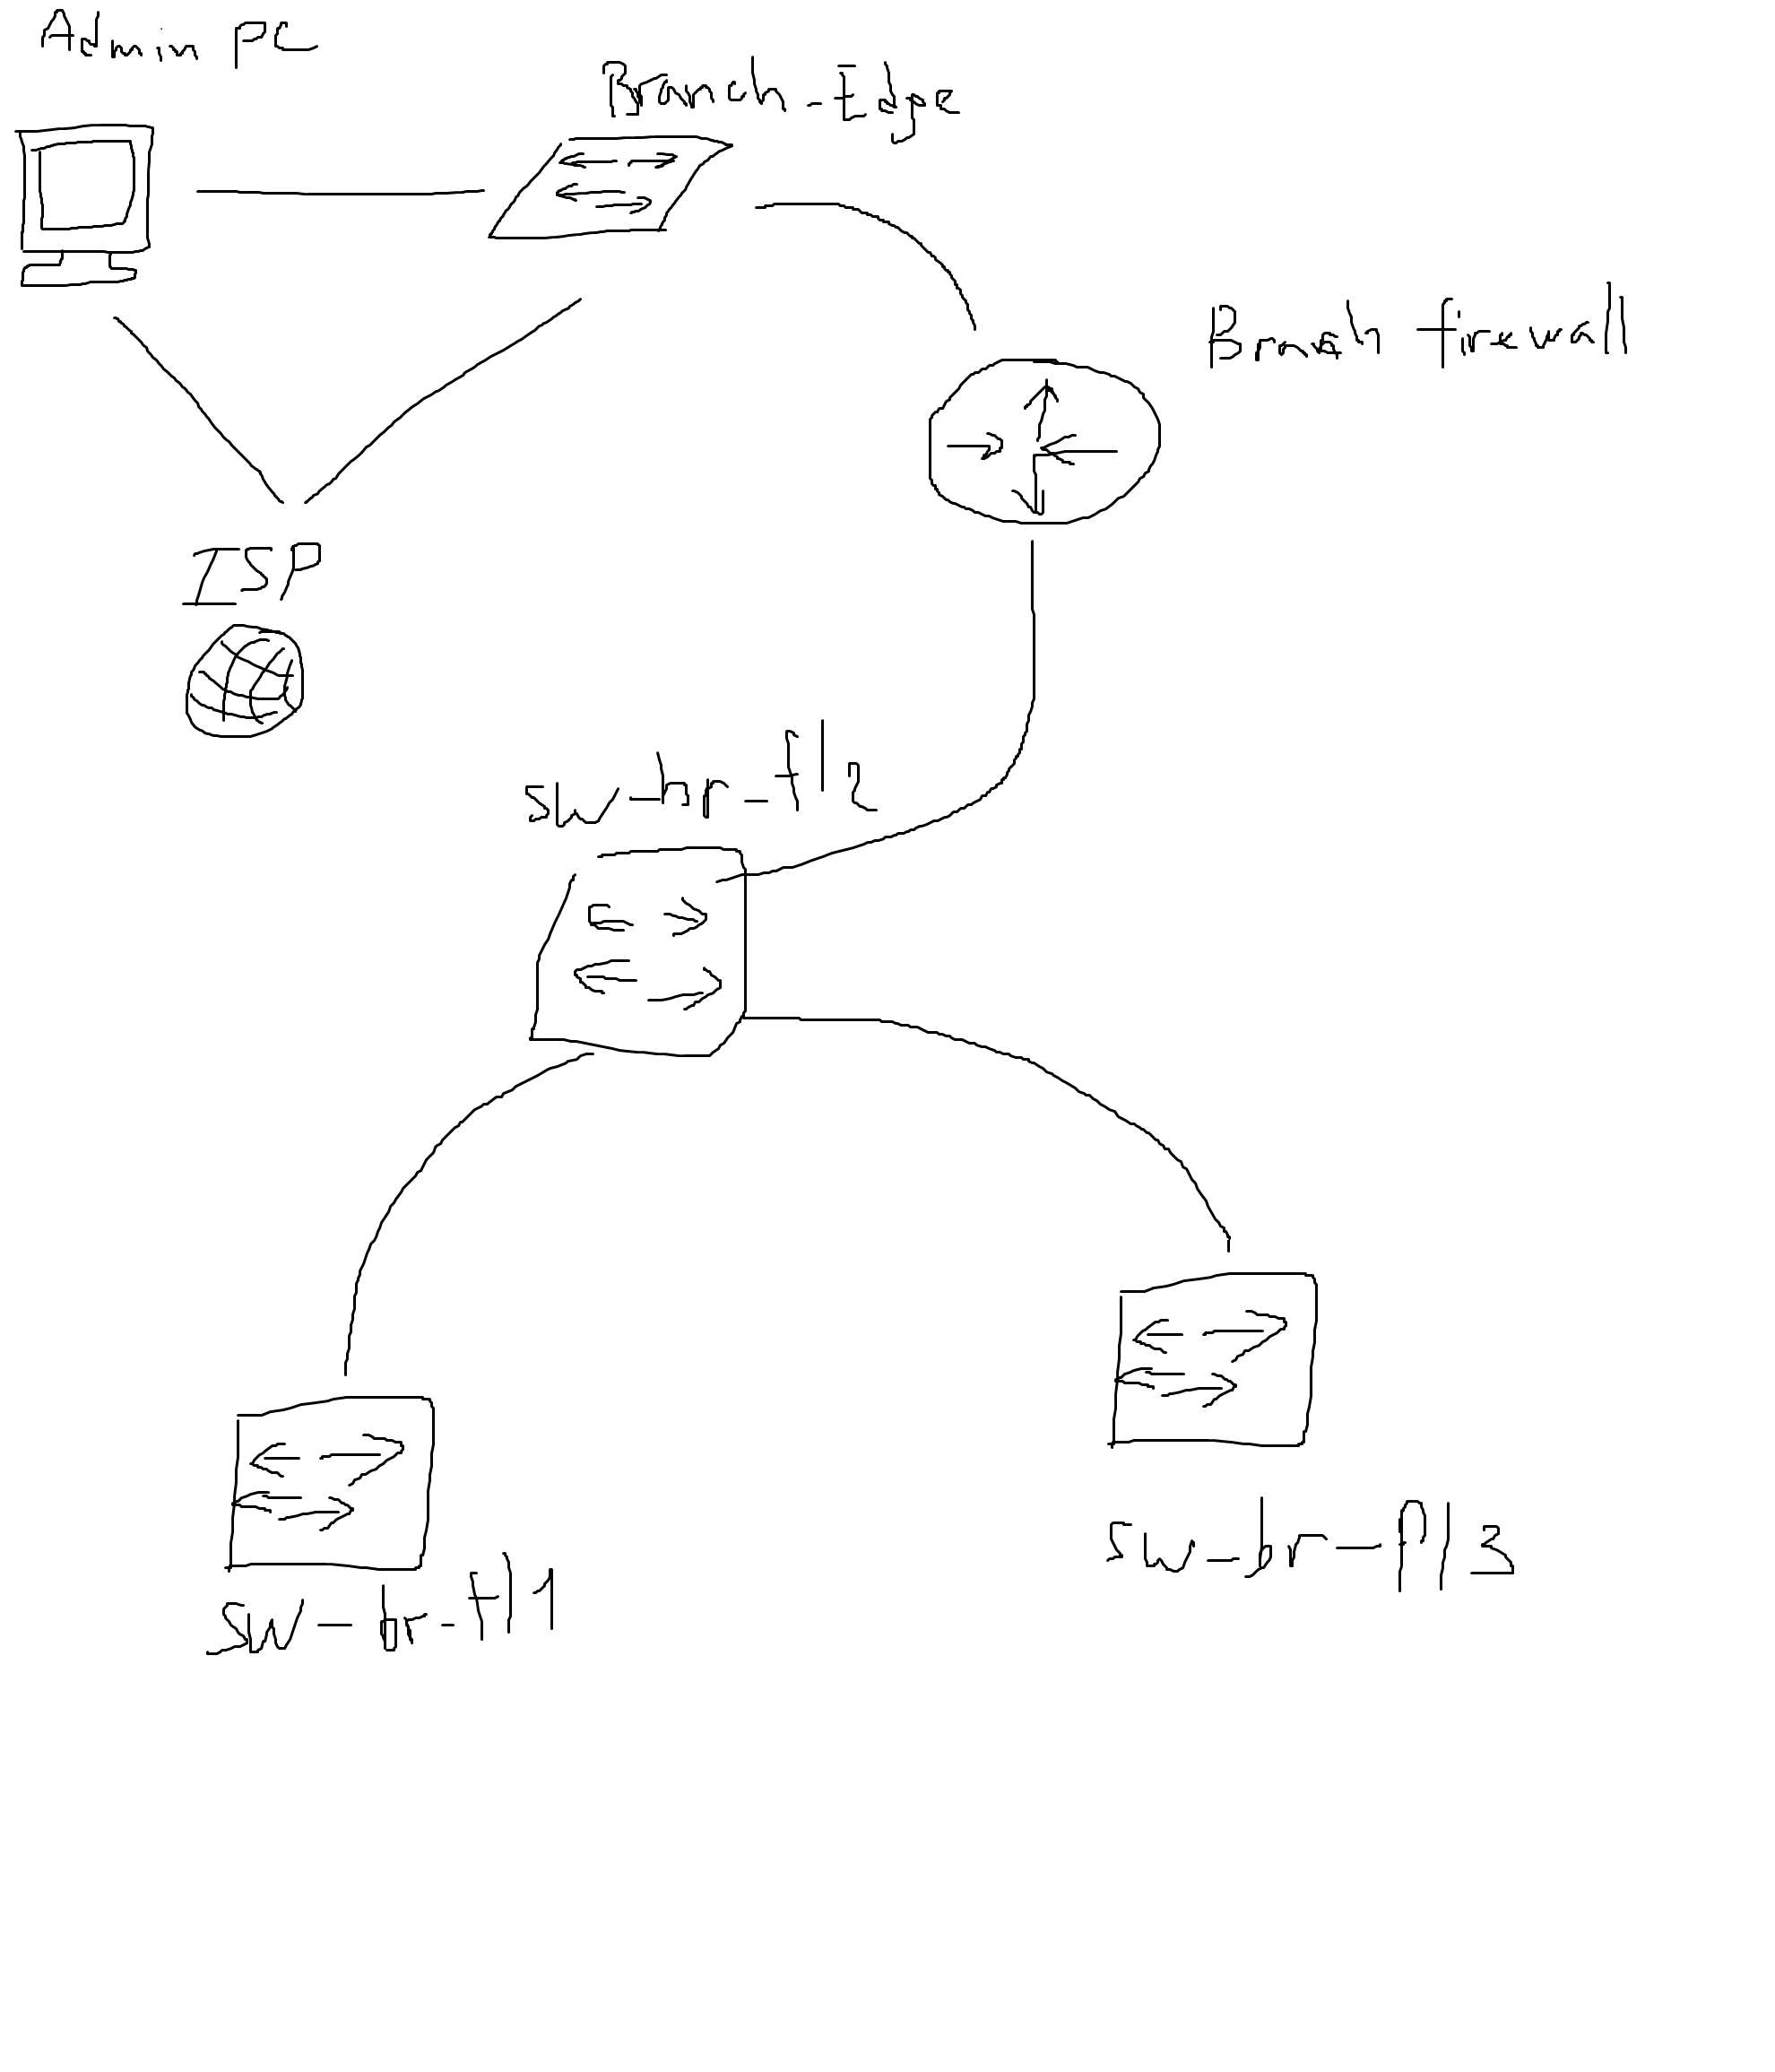 Admin PC
Branch-Edge
Branch firewall
ISP
sw-br-fl2
sw-br-fl3
sw-br-fl1